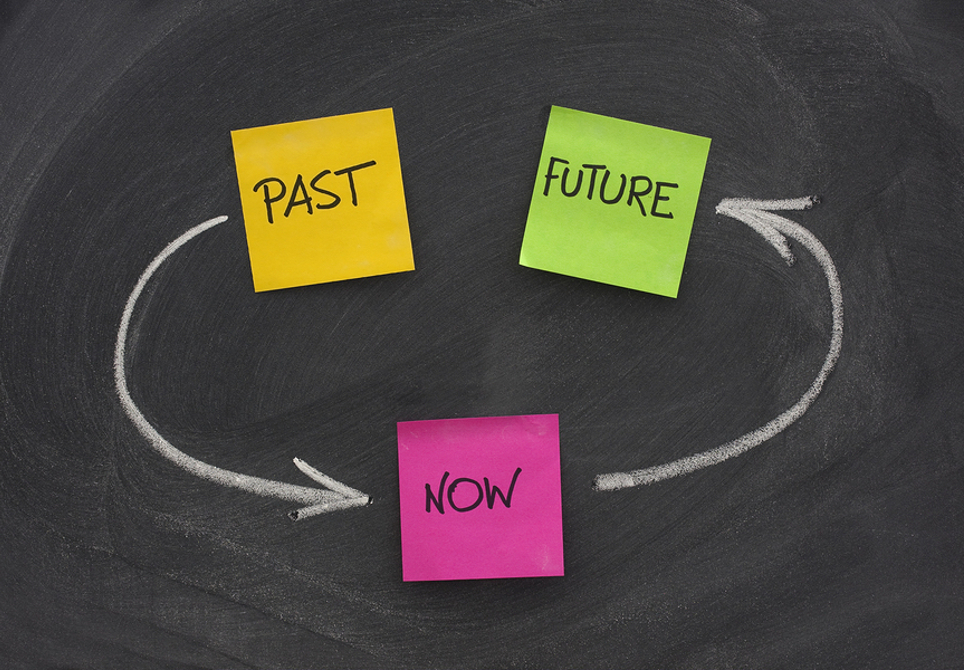 PAST
FUTURE
NOW